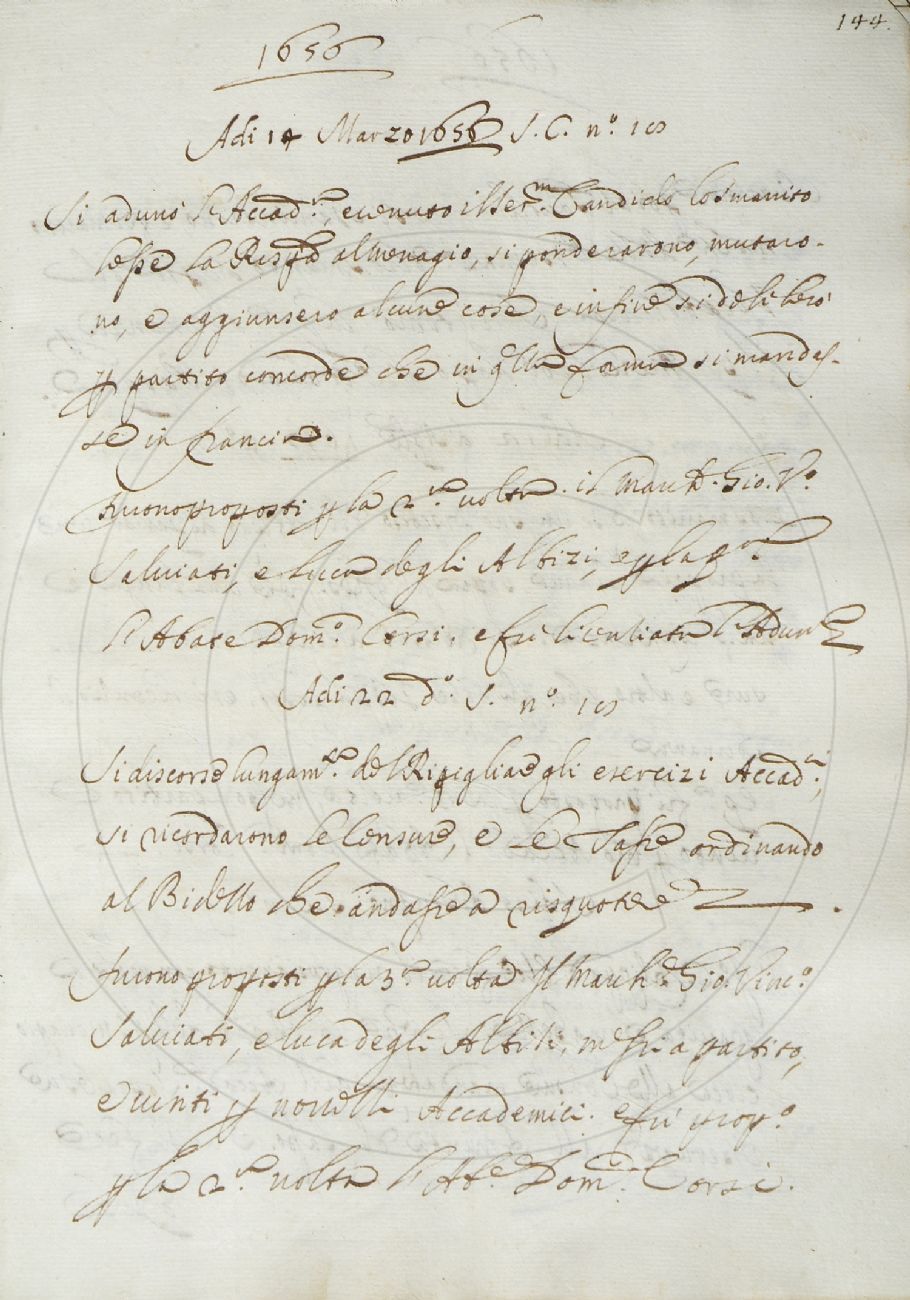 144.
1656
Adi 14 Marzo 1656 S. C. n.º 10
Si adunò l'Accad.ª, e venuto il Ser.m Candido
lesse la Risp.ª al Menagio, si ponderarono, mutaro-
no, e aggiunsero alcune cose, e in fine si deliberò
p partito concorde che in qlla forma si mandas-
se in francia.
furono proposti p la 2.ª volta il March. Gio. V.º
Salviati, e Luca degli Albizi, e p la p.ª
l'Abate Dom.º Corsi. e fu licenziata l'Adun.
Adi 22 d.º S. n.º 10
Si discorse lungam.te del Ripiglia e gli esercizi Accad.i,
si ricordarono le Censure, e le Tasse ordinando
al Bidello che andasse a risquotere.
furono proposti p la 3.ª volta Il March.e Gio. Vinc.º
Salviati, e Luca degli Albizi, messi a partito,
e vinti p novelli Accademici. e fu prop.º
p la 2.ª volta l'Ab.e Dom.º Corsi.